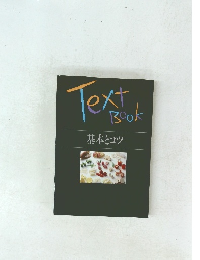 Text
Book
基本とコツ